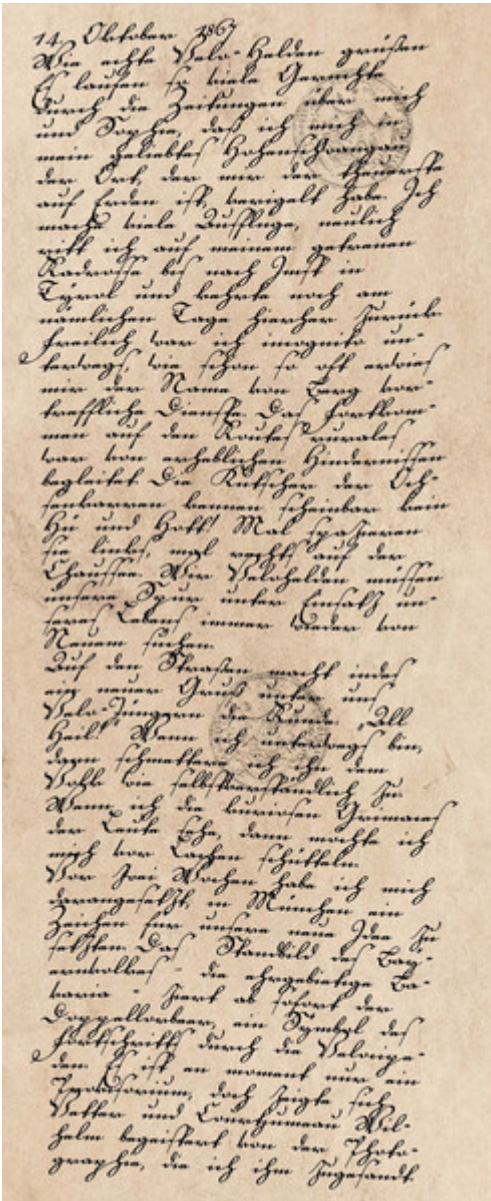 14. Oktober 1867
Wie echte Velo-Helden grüßen
Es laufen so viele Gerüchte
durch die Zeitungen über mich
und Sophie, daß ich mich in
mein geliebtes Hohenschwangau,
der Ort, der mir der theuerste
auf Erden ist, verigelt habe. Ich
mache viele Ausflüge, neulich
ritt ich auf meinem getreuen
Radrosse bis nach Imst in
Tyrol und kehrte noch am
nämlichen Tage hierher zurück.
Freilich war ich inkognito un-
terwegs, wie schon so oft erwies
mir der Name von Berg vor-
treffliche Dienste. Das Fortkom-
men auf den Routes rurales
war von erheblichen Hindernissen
begleitet. Die Kutscher der Och-
senkarren kennen scheinbar kein
Hü und Hott! Mal spazieren
sie links, mal rechts auf der
Chaussee. Wir Velohelden müssen
unsere Spur unter Einsatz un-
seres Lebens immer wieder von
Neuem suchen.
Auf den Straßen macht indes
ein neuer Gruß unter uns
Velo-Jüngern die Runde: „All
Heil!" Wenn ich unterwegs bin,
dann schmettere ich ihn dem
Volke wie selbstverständlich zu.
Wenn ich die kuriosen Grimaces
der Leute sehe, dann möchte ich
mich vor Lachen schütteln.
Vor zwei Wochen habe ich mich
darangesetzt, in München ein
Zeichen für unsere neue Idee zu
setzen. Das Standbild des Bay-
ernvolkes - die ehrgebietige Ba-
varia - ziert ab sofort der
Doppellorbeer, ein Symbol des
Fortschritts durch die Velocipe-
den. Es ist en moment nur ein
Provisorium, doch zeigte sich
Vetter und Wil-
helm begeistert von der Photo-
graphie, die ich ihm zugesandt.